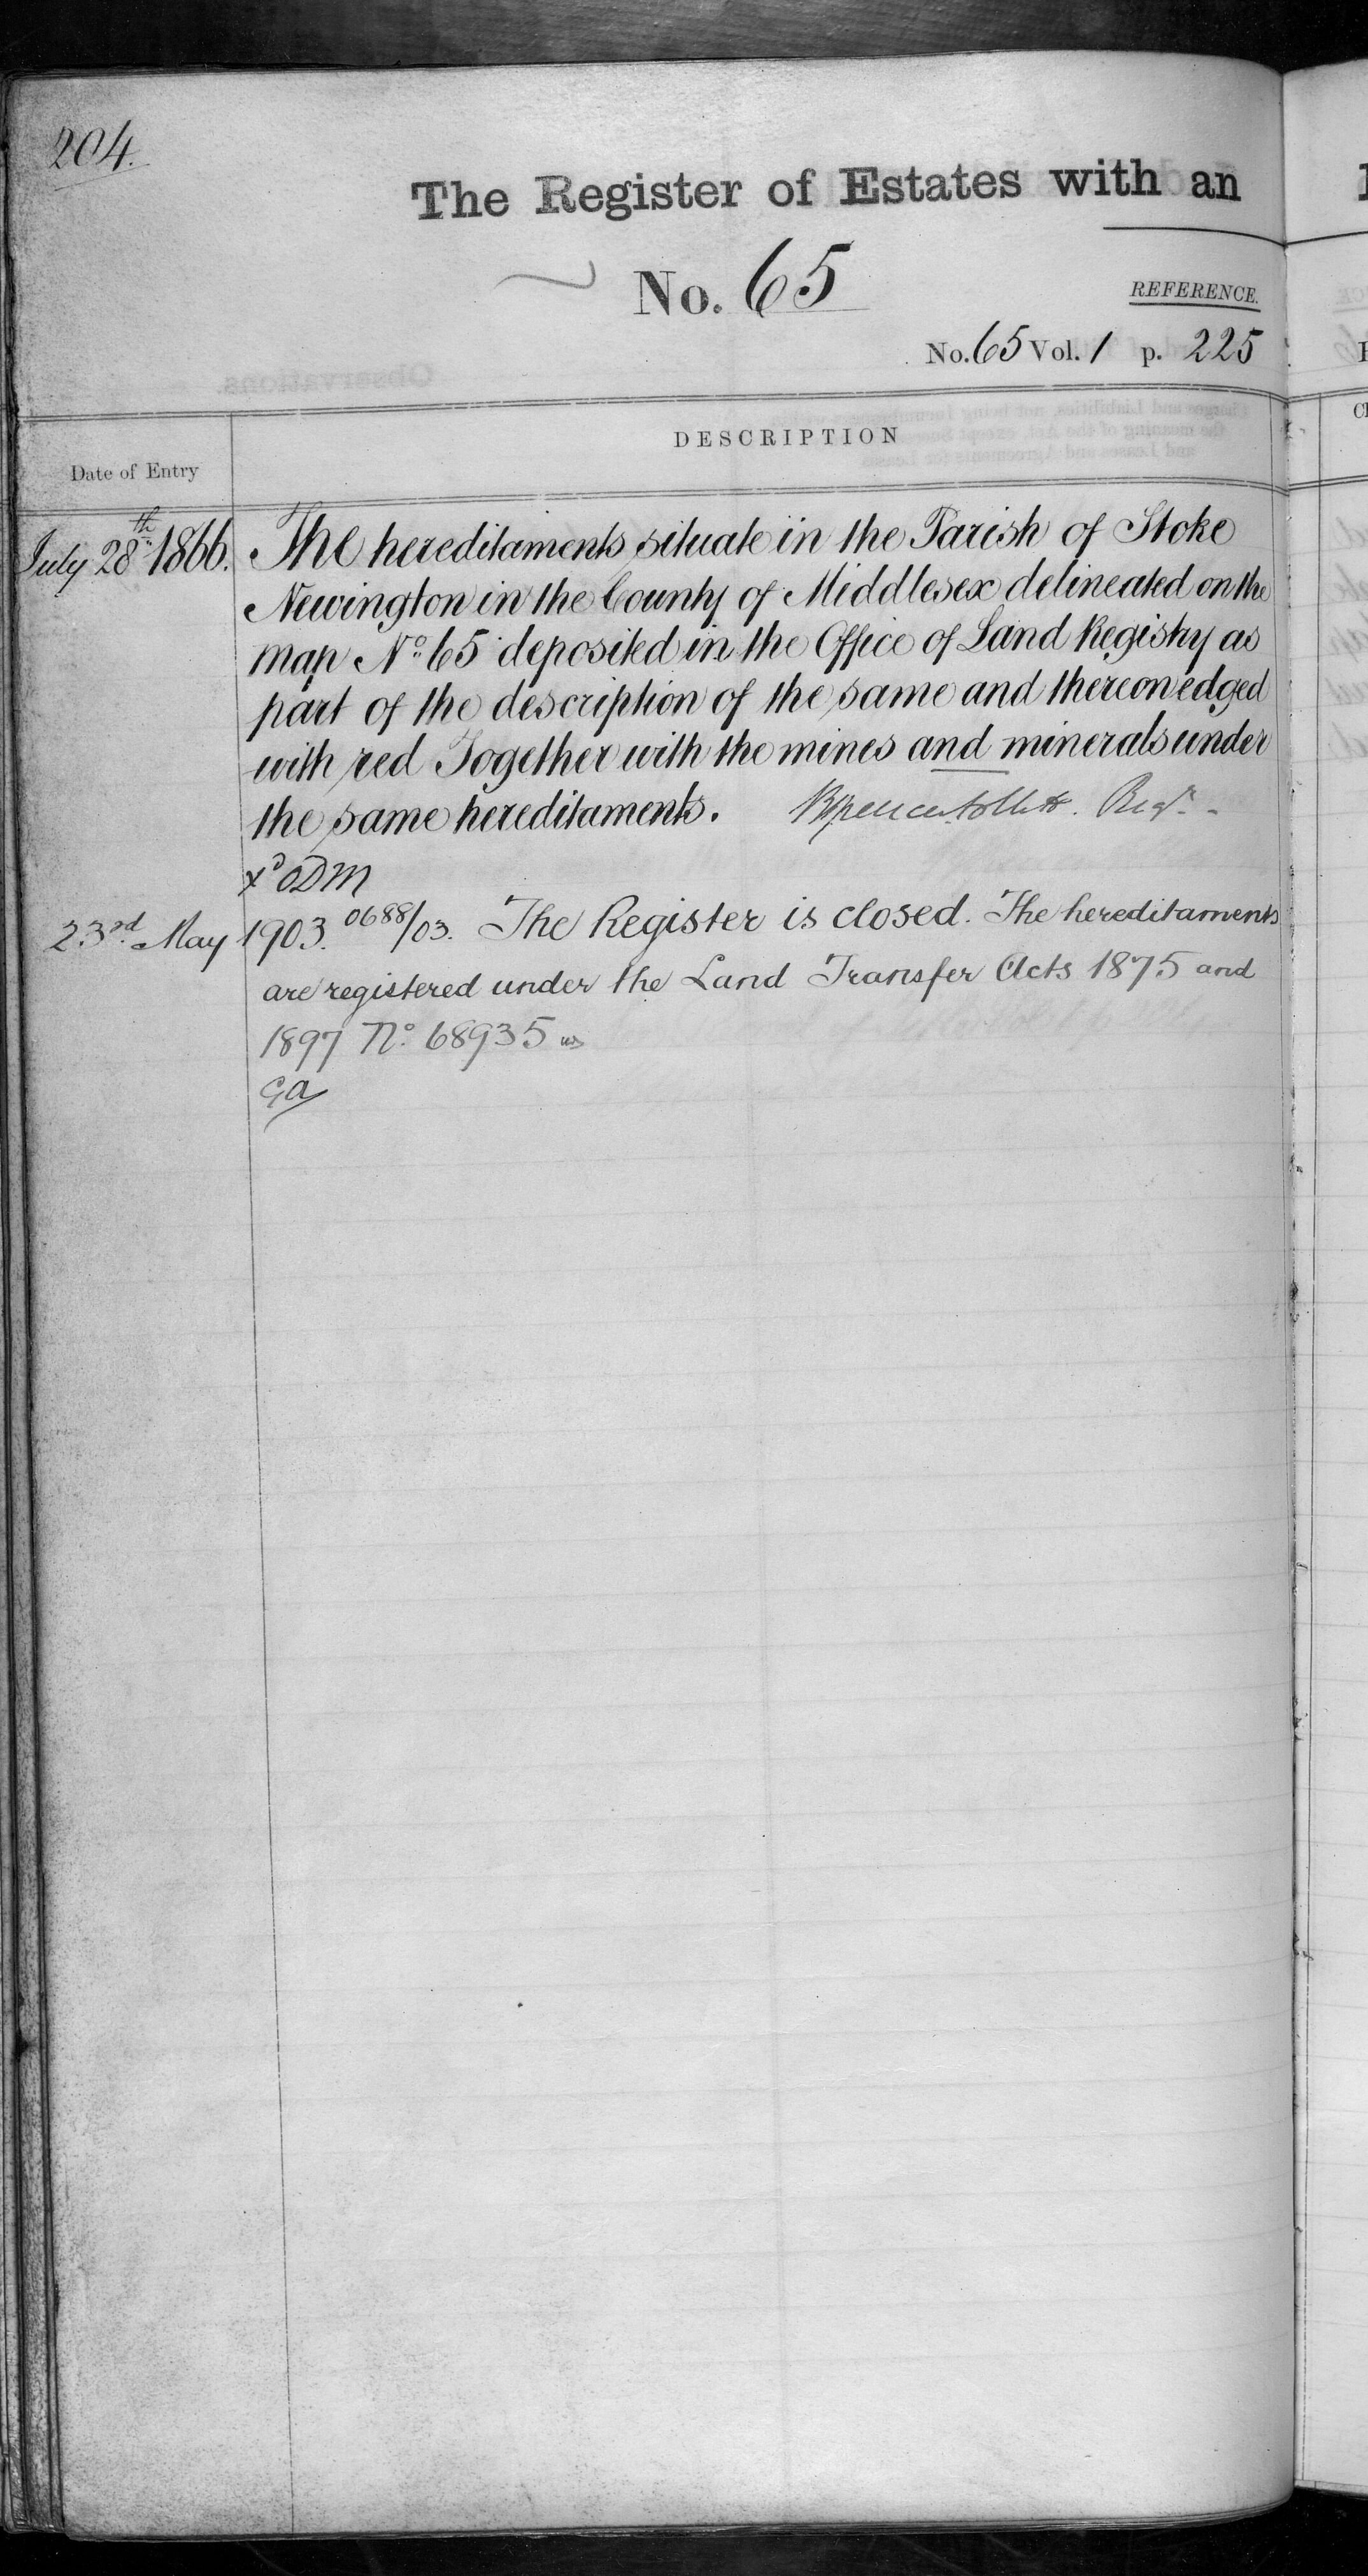 204.
The Register of Estates with an
No. 65
REFERENCE.
No. 65 Vol. 1 p. 225
Date of Entry
DESCRIPTION
July 28th 1866. The hereditaments situate in the Parish of Stoke
Newington in the County of Middlesex delineated on the
map No. 65 deposited in the Office of Land Registry as
part of the description of the same and thereon edged
with red Together with the mines and minerals under
the same hereditaments. Brent Spencer Follett. Regr.
xd ODM
23rd. May 1903. 0688/03. The Register is closed. The hereditaments
are registered under the Land Transfer Acts 1875 and
1897 No. 68935
GA